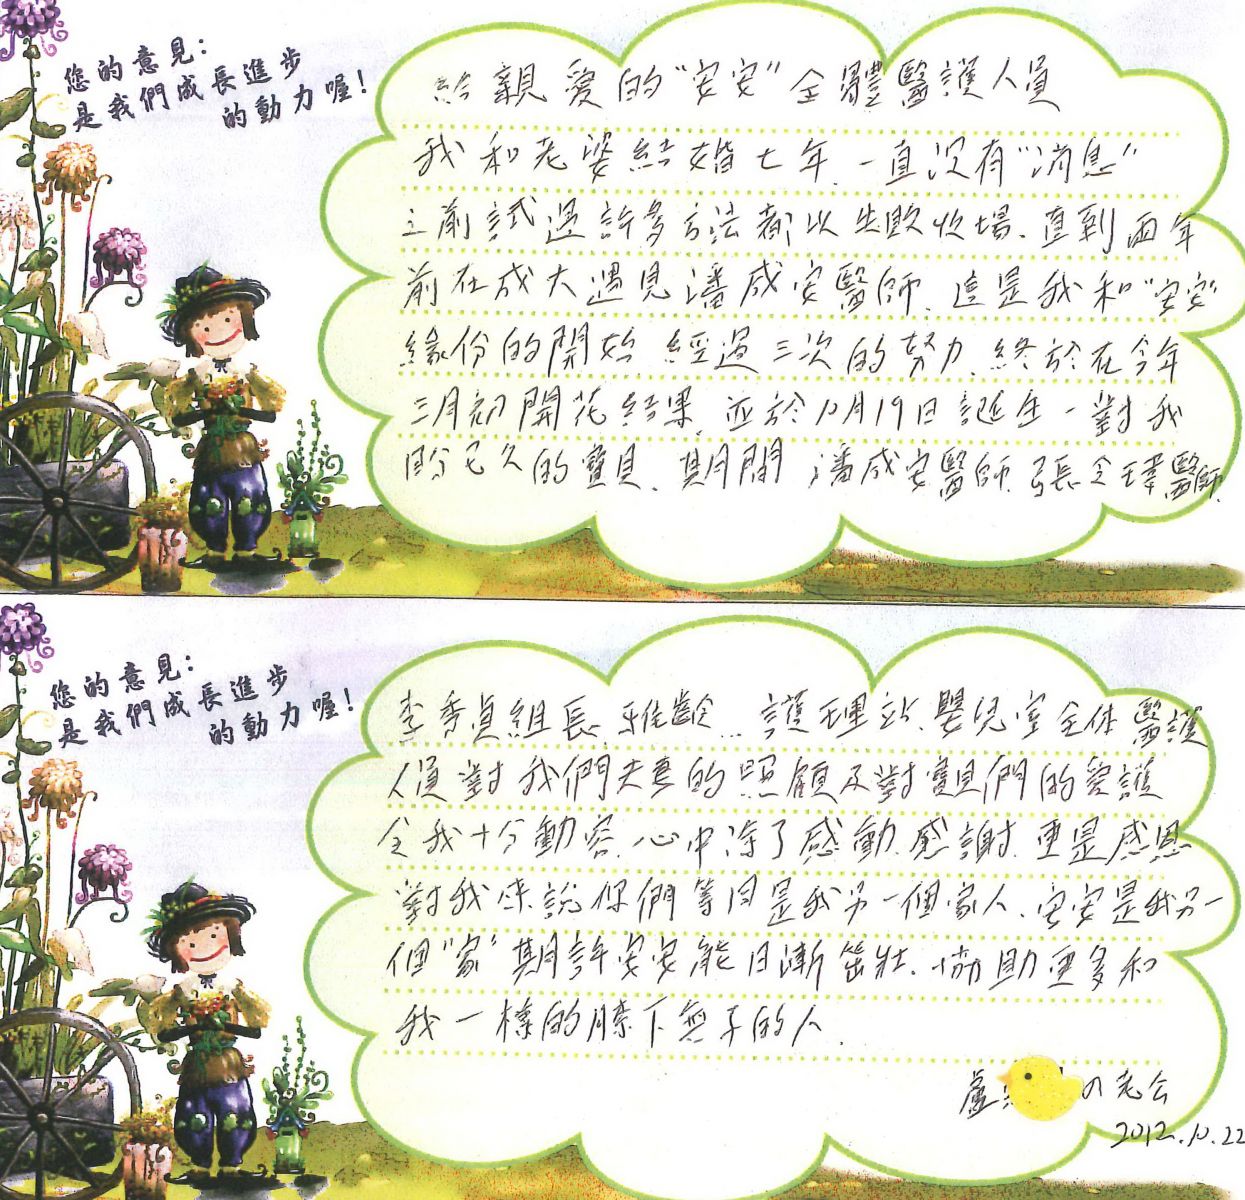 您的意見：
是我們成長進步
的動力喔！
給親愛的"安安"全體醫護人員
我和老婆結婚七年.一直沒有"消息"
之前試過許多方法都以失敗收場.直到兩年
前在成大遇見潘成安醫師.這是我和"安安"
緣份的開始 經過三次的努力.終於在今年
三月初開花結果.並於10月19日誕生一對我
盼已久的寶貝.期間 潘成安醫師.張令瑋醫師.
您的意見：
是我們成長進步
的動力喔！
李秀貞組長.雅齡...護理站.嬰兒室全体醫護
人員對我們夫妻的照顧及對寶貝們的愛護
令我十分動容.心中除了感動.感謝.更是感恩
對我來說你們等同是我另一個家人.安安是我另一
個"家"期許安安能日漸茁壯.協助更多和
我一樣的膝下無子的人.
盧 の老公
2012.10.22